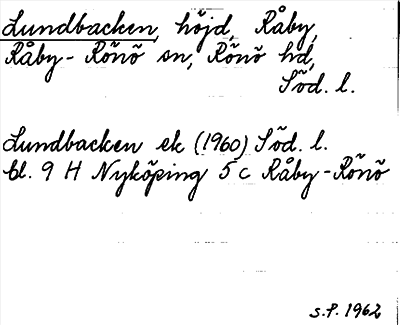 Lundbacken, höjd, Råby,
Råby-Rönö sn, Rönö hd,
Söd. l.
Lundbacken ek (1960) Söd. l.
bl. 9 H Nyköping 5 c Råby-Rönö
S.P. 1962